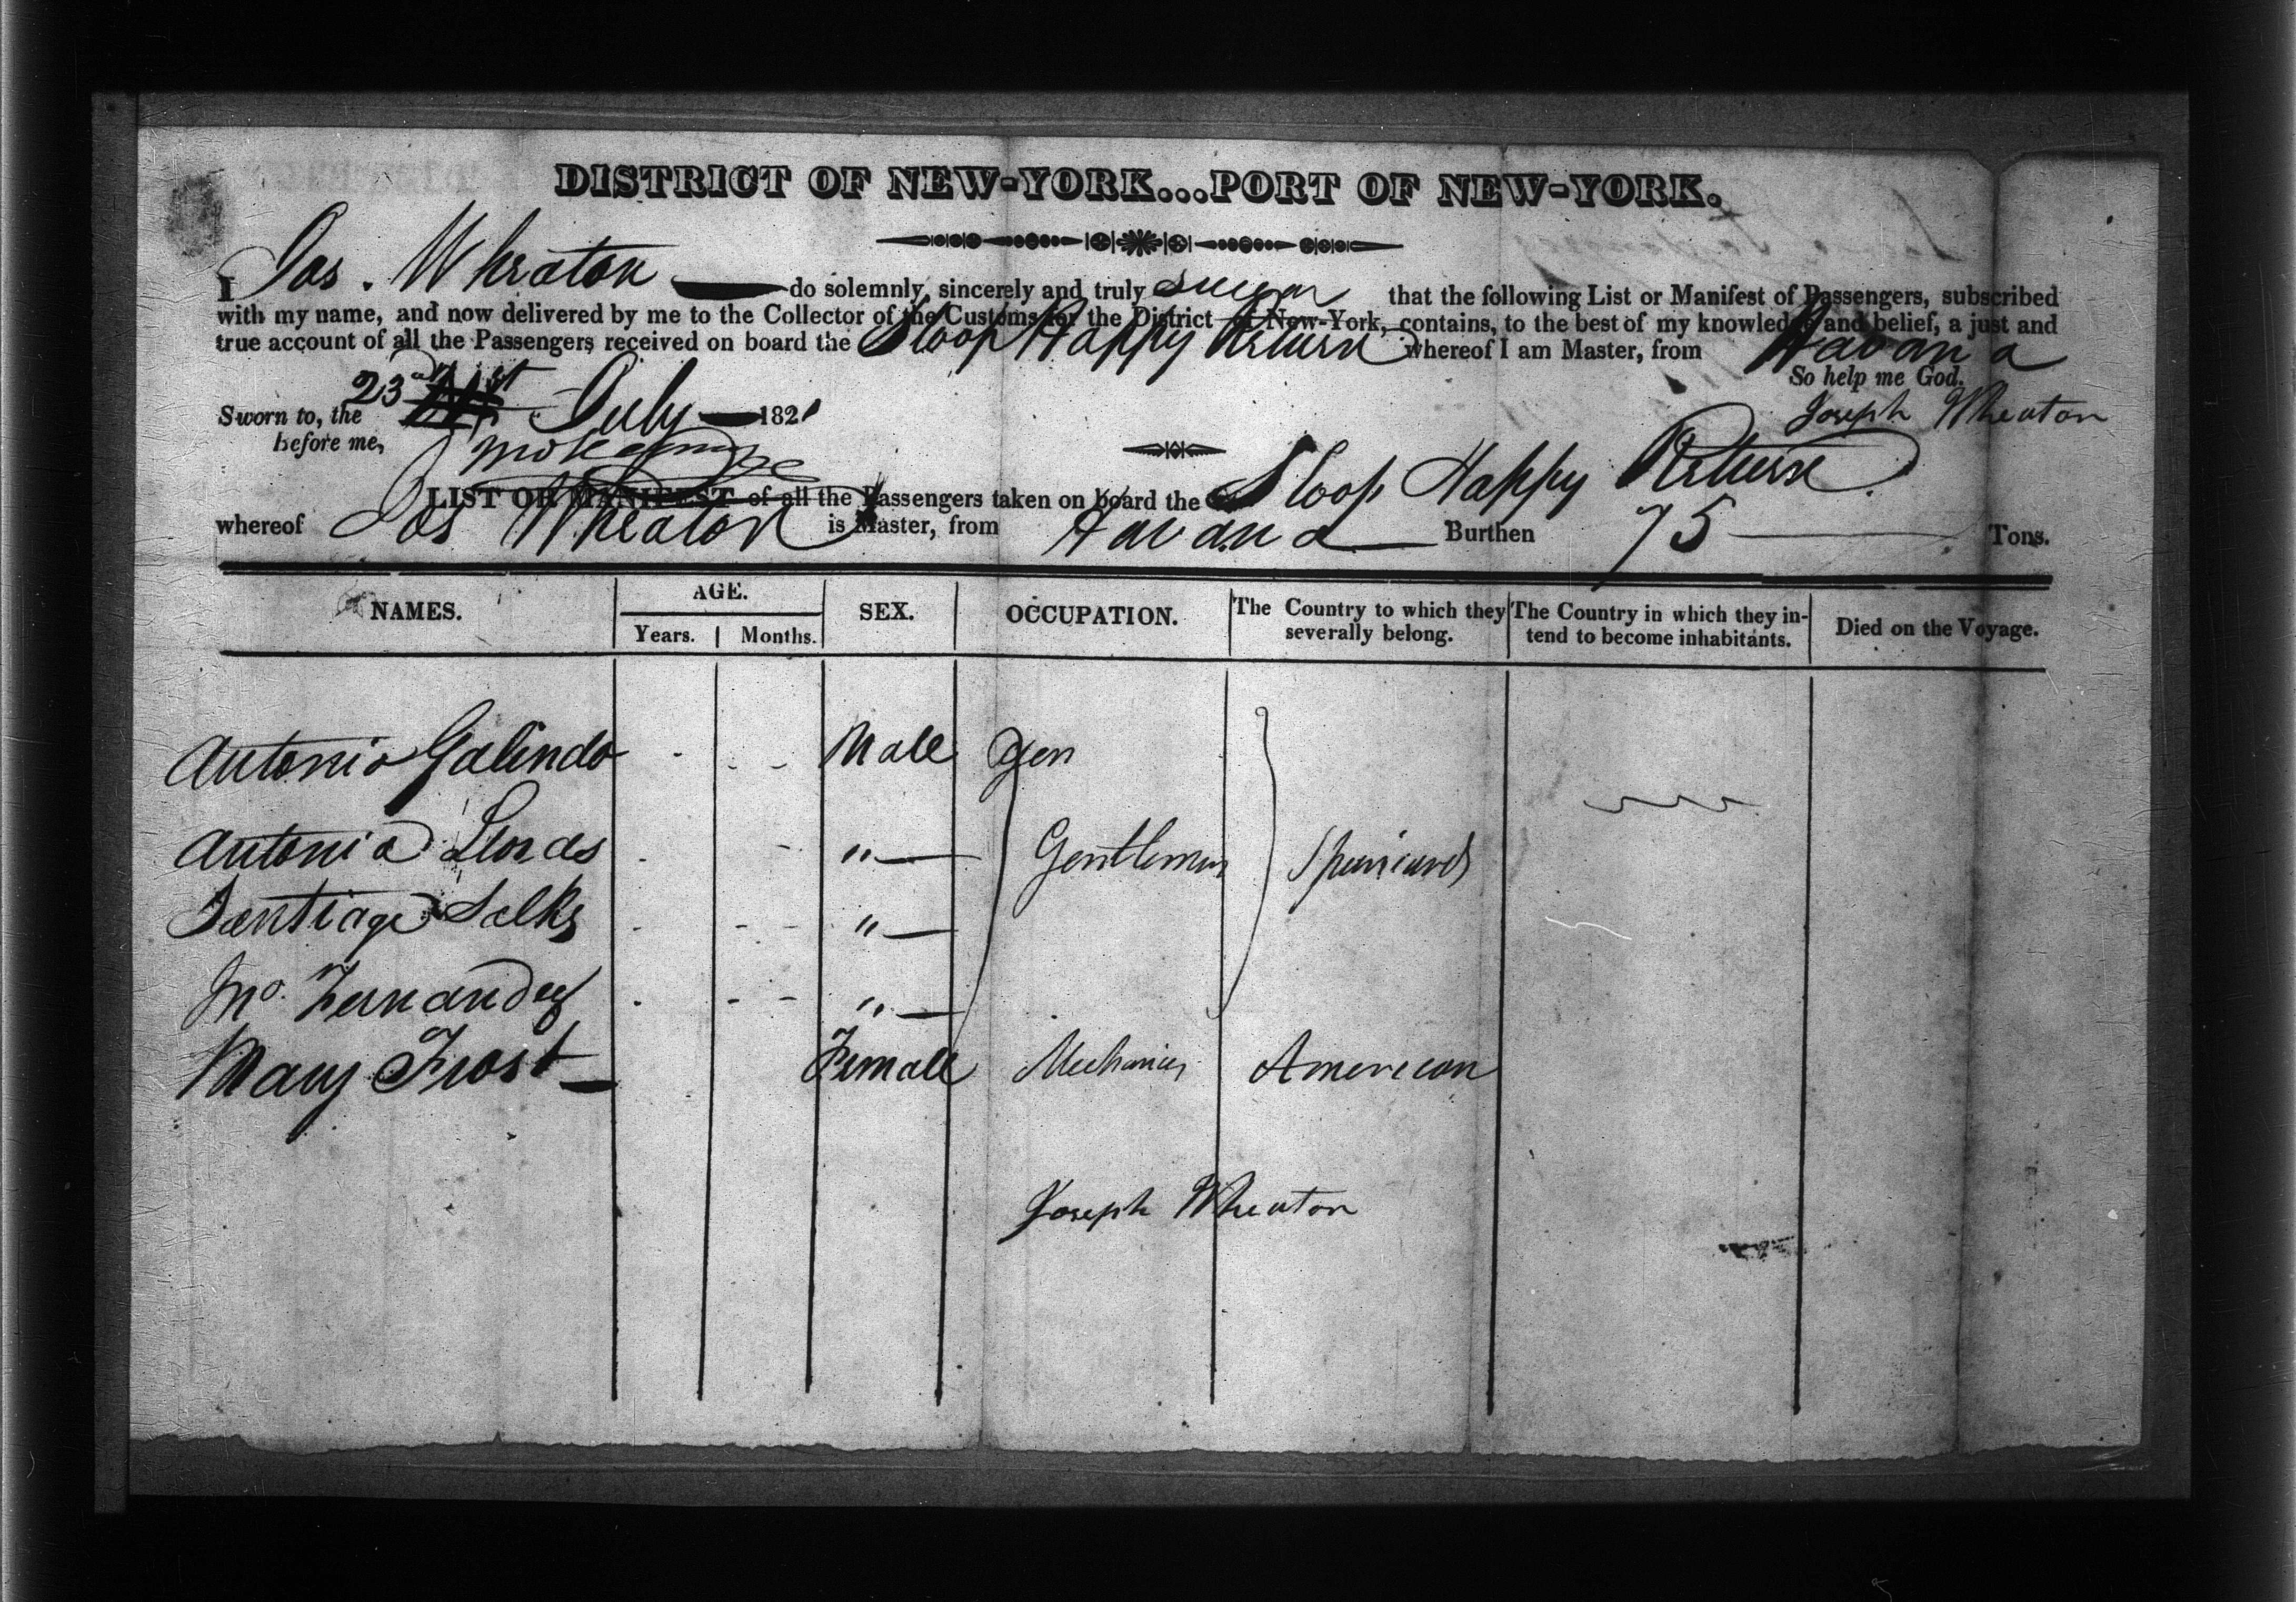 DISTRICT OF NEW-YORK...PORT OF NEW-YORK.
I Jos. Wheaton do solemnly, sincerely and truly swear that the following List or Manifest of Passengers, subscribed
with my name, and now delivered by me to the Collector of the Customs for the District of New-York, contains, to the best of my knowledge and belief, a just and
true account of all the Passengers received on board the Sloop Happy Return whereof I am Master, from Havana
So help me God.
Sworn to, the 23 July 1821
Joseph Wheaton
before me,
LIST OR MANIFEST of all the Passengers taken on board the Sloop Happy Return
whereof Jos Wheaton is Master, from Havana Burthen 75 Tons.
NAMES. AGE. SEX. OCCUPATION. The Country to which they severally belong. The Country in which they intend to become inhabitants. Died on the Voyage.
Years. Months.
Antonio Galindo - - - Male Gen
Antonio - - " Gentlemen Spaniards
Santiago - - - "
Mo. Fernandez - - - "
Mary Frost Female Mechanics American
Joseph Wheaton